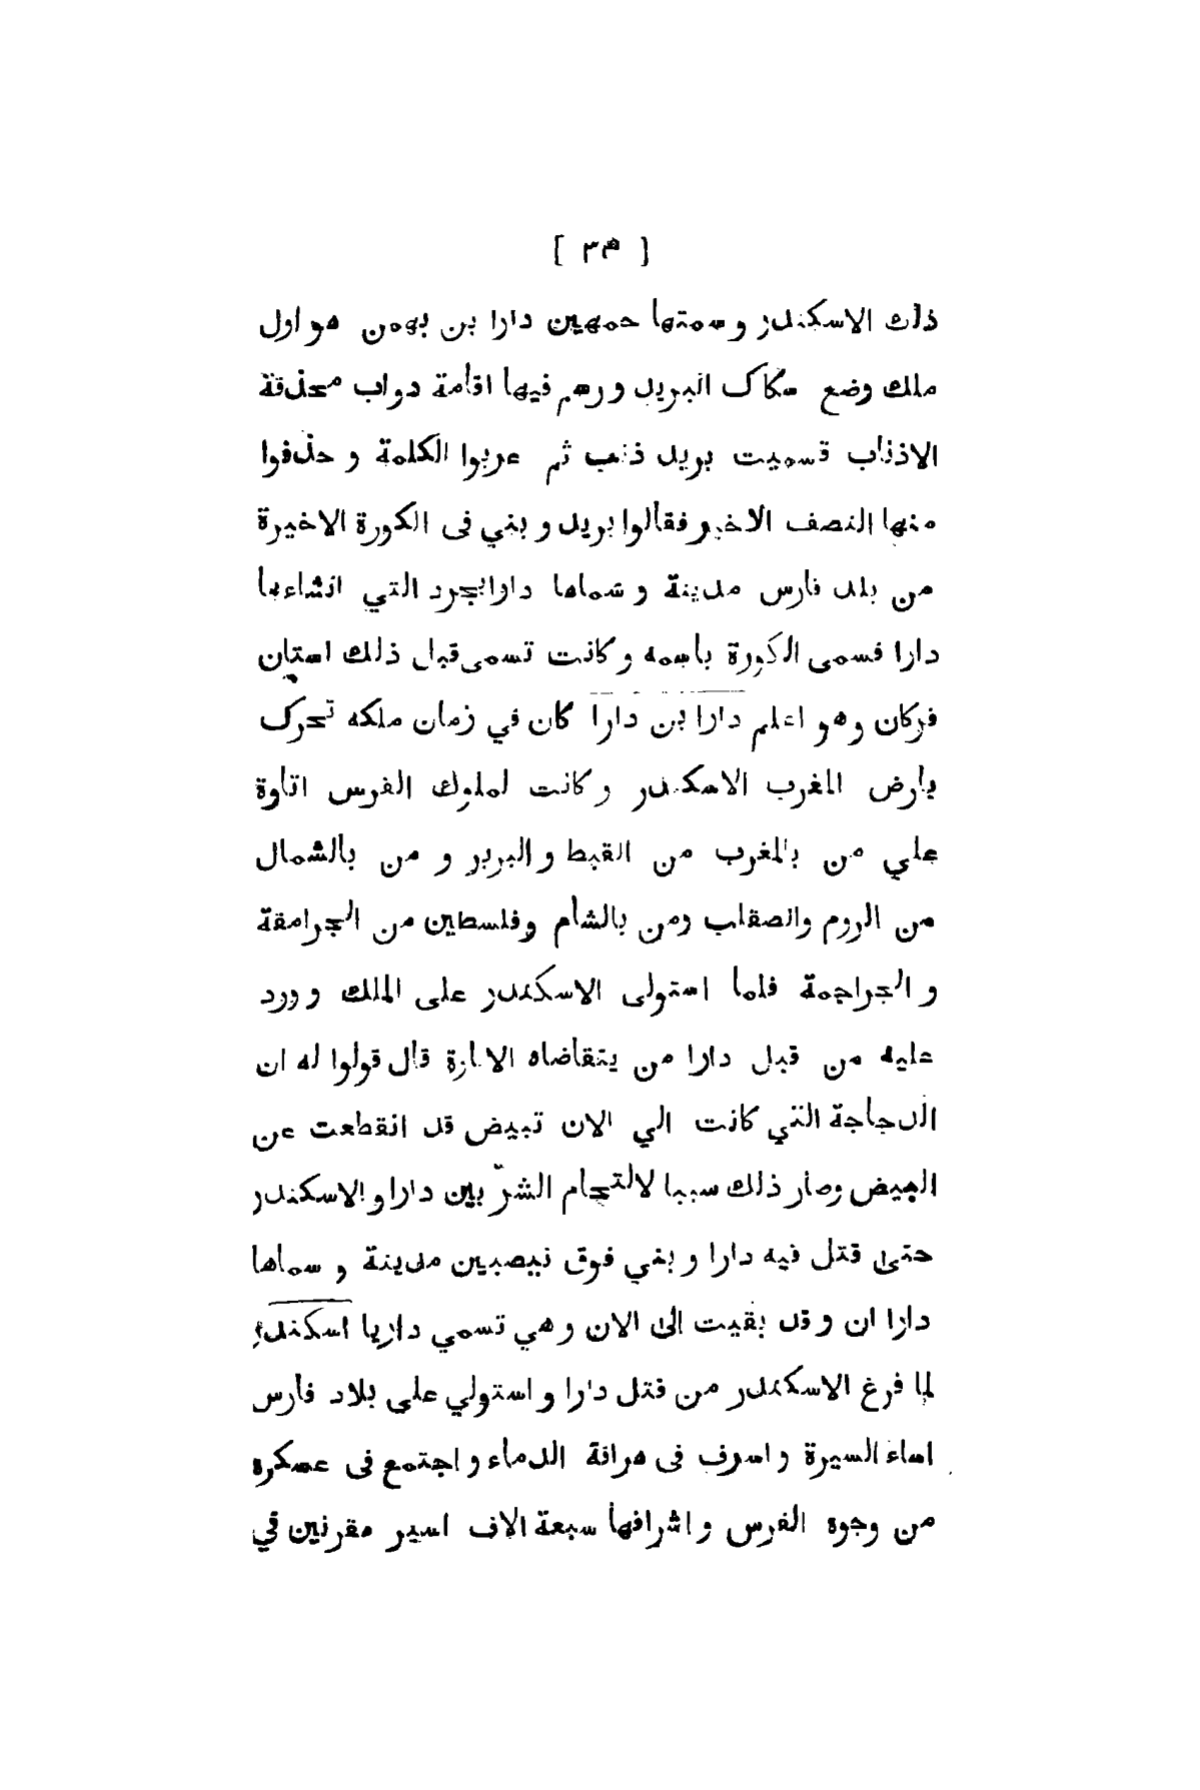 [ ٣٥ ]
ذلك الاسكندر وسمتها حمهين دارا بن بهمن هو اول
ملك وضع سكاك البريد ورسم فيها اقامة دواب محذقة
الاذناب فسميت بريد ذنب ثم عربوا الكلمة و حذفوا
منها النصف الاخير فقالوا بريد و بني فى الكورة الاخيرة
من بلد فارس مدينة و سماها دارابجرد التي انشاءها
دارا فسمى الكورة باسمه و كانت تسمى قبل ذلك استان
فركان وهو اعلم دارا بن دارا كان في زمان ملكه تحرك
بارض المغرب الاسكندر و كانت لملوك الفرس اتاوة
علي من بالمغرب من القبط و البربر و من بالشمال
من الروم والصقلب ومن بالشام وفلسطين من الجرامقة
و الجراجمة فلما استولى الاسكندر على الملك و ورد
عليه من قبل دارا من يتقاضاه الاتارة قال قولوا له ان
الدجاجة التي كانت الي الان تبيض قد انقطعت عن
البيض وصار ذلك سببا لالتحام الشرّ بين دارا و الاسكندر
حتى قتل فيه دارا و بني فوق نيصبين مدينة و سماها
دارا ان و قد بقيت الى الان و هي تسمي داريا اسكندر
لما فرغ الاسكندر من قتل دارا و استولي على بلاد فارس
اساء السيرة و اسرف فى هراقة الدماء و اجتمع فى عسكره
من وجوه الفرس و اشرافها سبعة الاف اسير مقرنين في